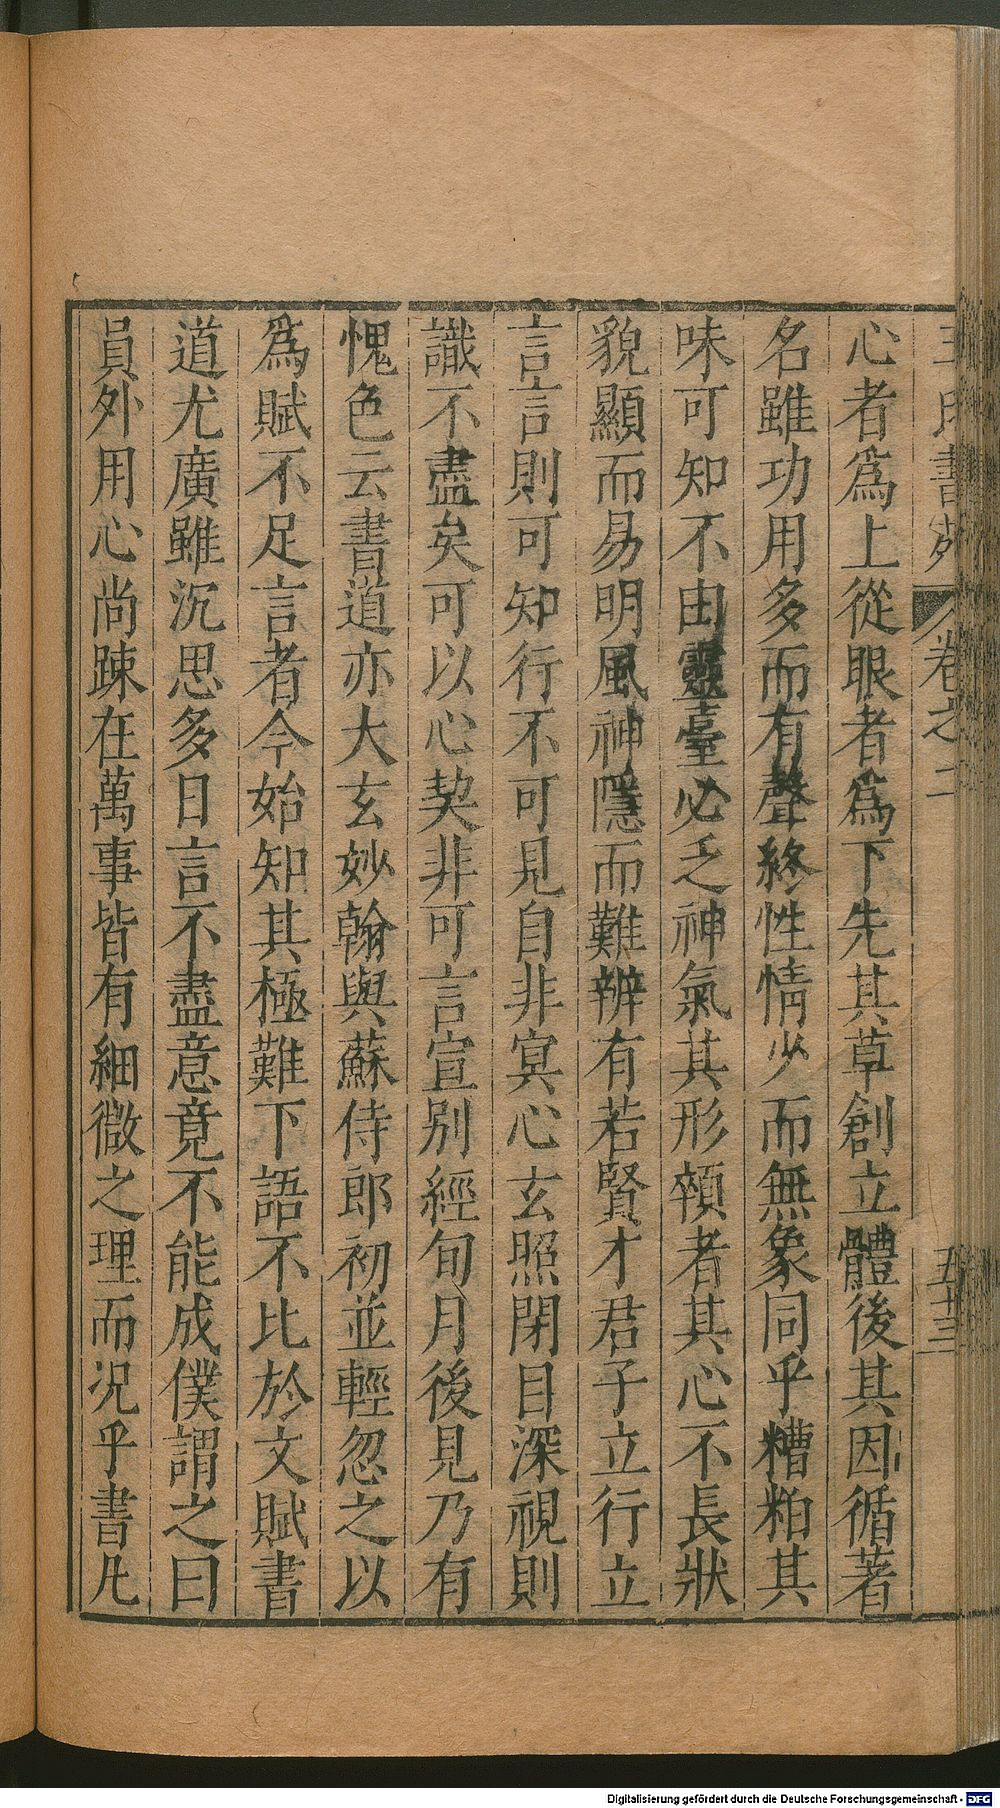 王氏書苑 卷之二 五十三
心者爲上從眼者爲下先其草創立體後其因循著
名雖功用多而有聲終性情少而無象同乎糟粕其
味可知不由靈臺必乏神氣其形顇者其心不長狀
貌顯而易明風神隱而難辨有若賢才君子立行立
言言則可知行不可見自非冥心玄照閉目深視則
識不盡矣可以心契非可言宣別經旬月後見乃有
愧色云書道亦大玄妙翰與蘇侍郎初並輕忽之以
爲賦不足言者今始知其極難下語不比於文賦書
道尤廣雖沉思多日言不盡意竟不能成僕謂之曰
員外用心尚踈在萬事皆有細微之理而況乎書凡
Digitalisierung gefördert durch die Deutsche Forschungsgemeinschaft - DFG